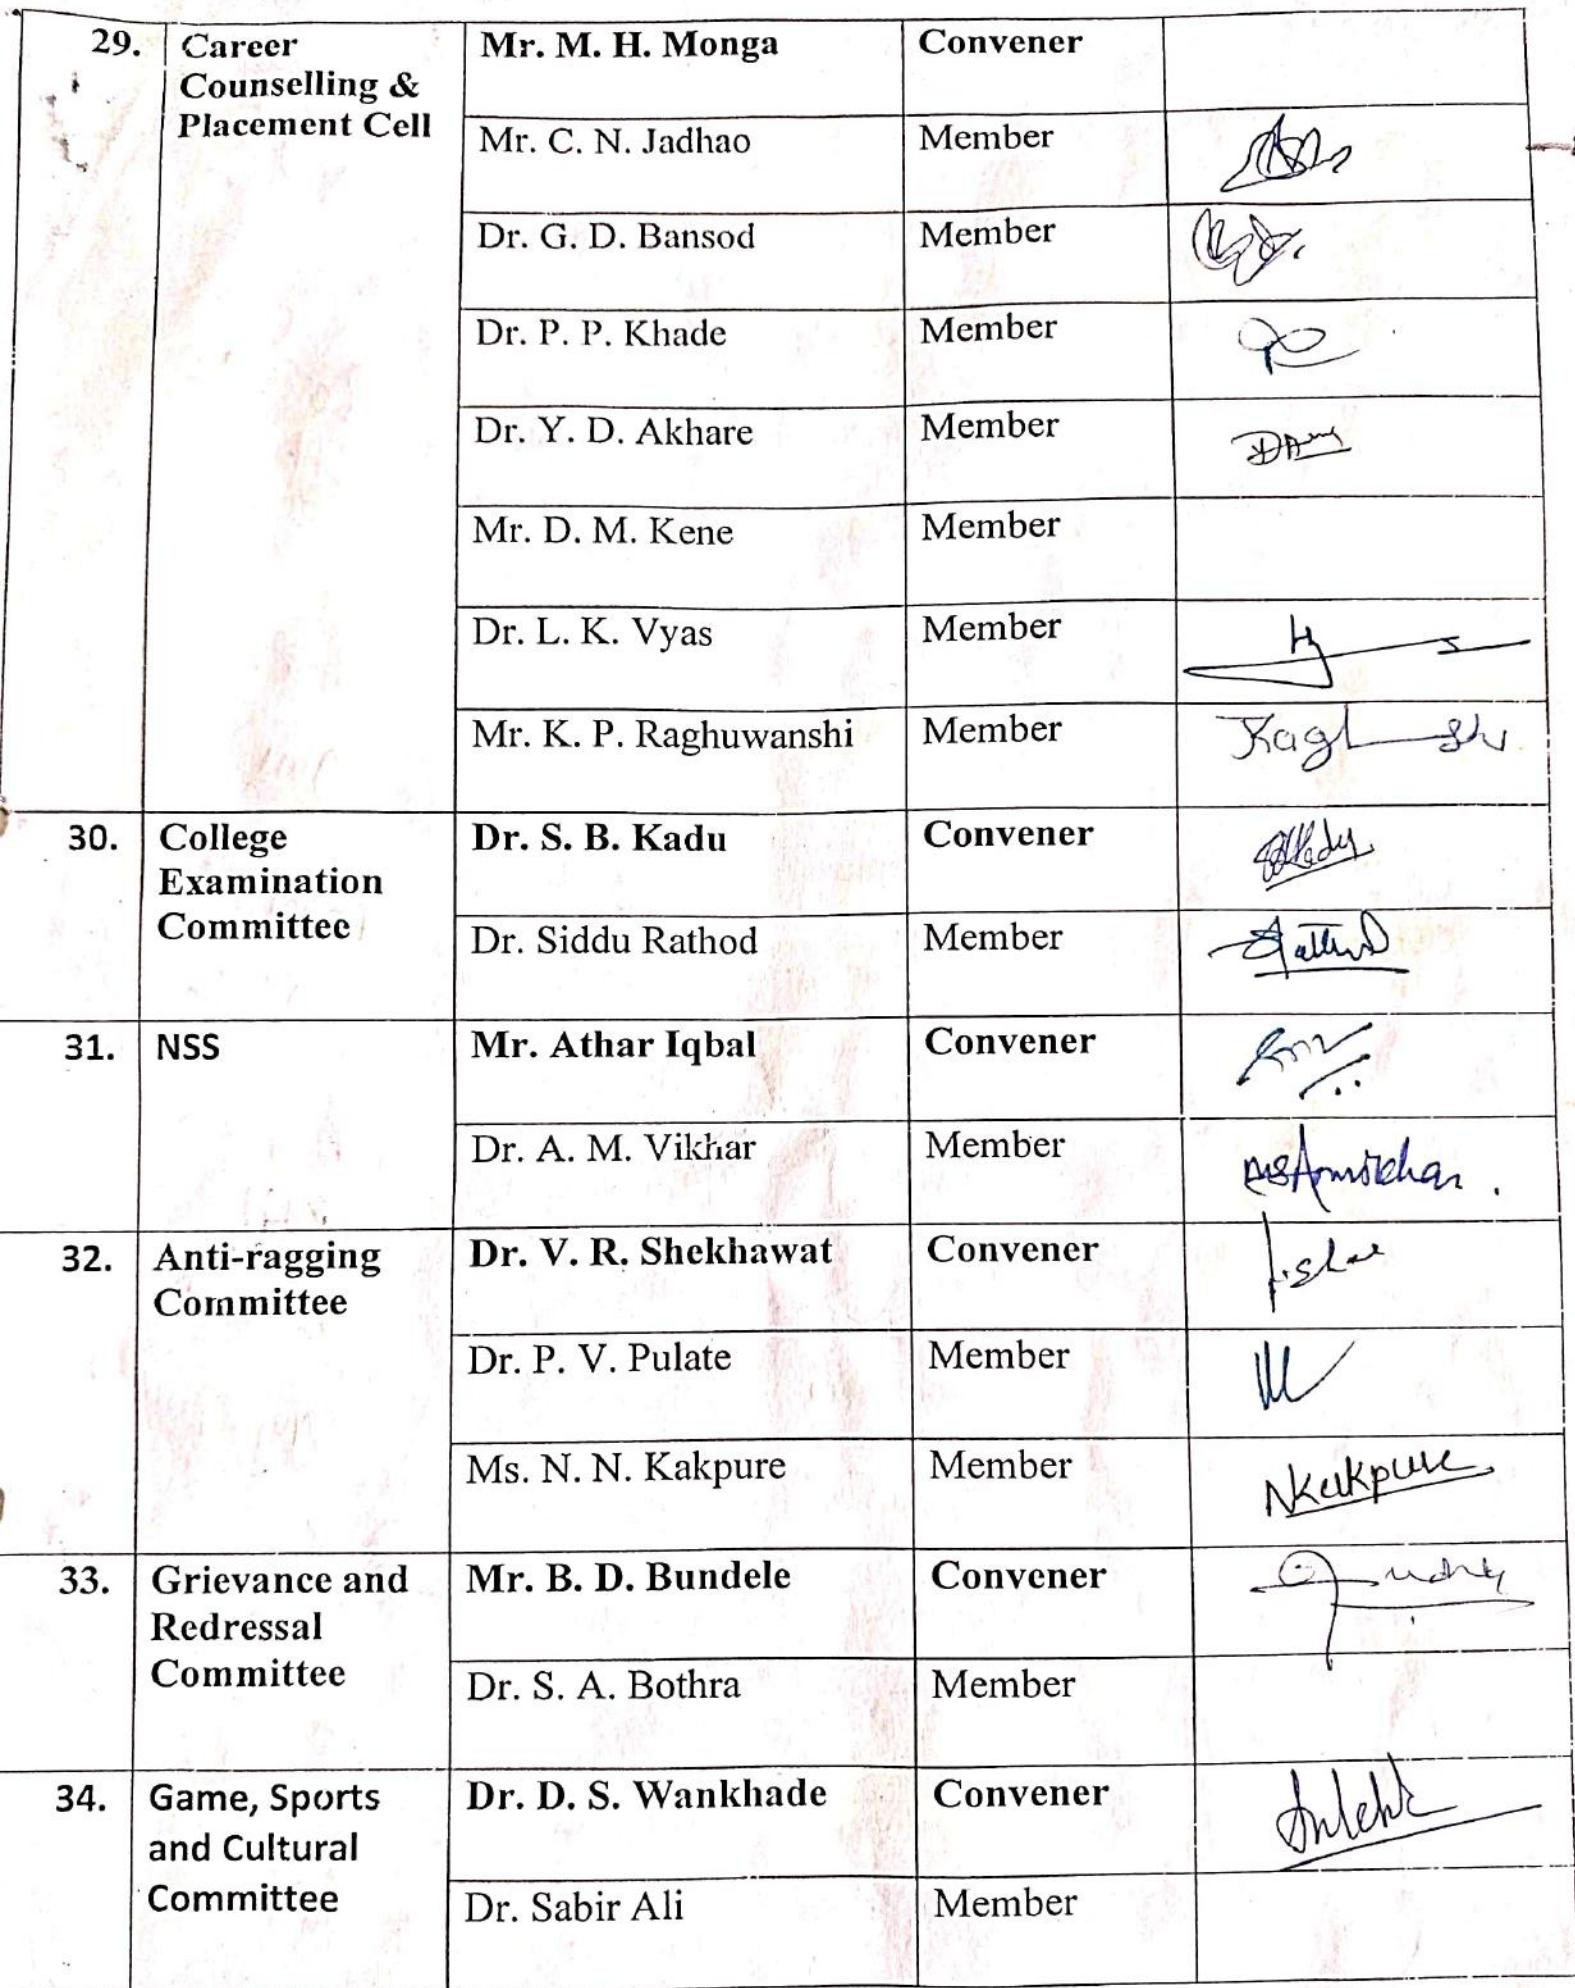 29. Career Counselling & Placement Cell Mr. M. H. Monga Convener
Mr. C. N. Jadhao Member
Dr. G. D. Bansod Member
Dr. P. P. Khade Member
Dr. Y. D. Akhare Member
Mr. D. M. Kene Member
Dr. L. K. Vyas Member
Mr. K. P. Raghuwanshi Member
30. College Examination Committee Dr. S. B. Kadu Convener
Dr. Siddu Rathod Member
31. NSS Mr. Athar Iqbal Convener
Dr. A. M. Vikhar Member
32. Anti-ragging Committee Dr. V. R. Shekhawat Convener
Dr. P. V. Pulate Member
Ms. N. N. Kakpure Member NKakpure
33. Grievance and Redressal Committee Mr. B. D. Bundele Convener
Dr. S. A. Bothra Member
34. Game, Sports and Cultural Committee Dr. D. S. Wankhade Convener
Dr. Sabir Ali Member